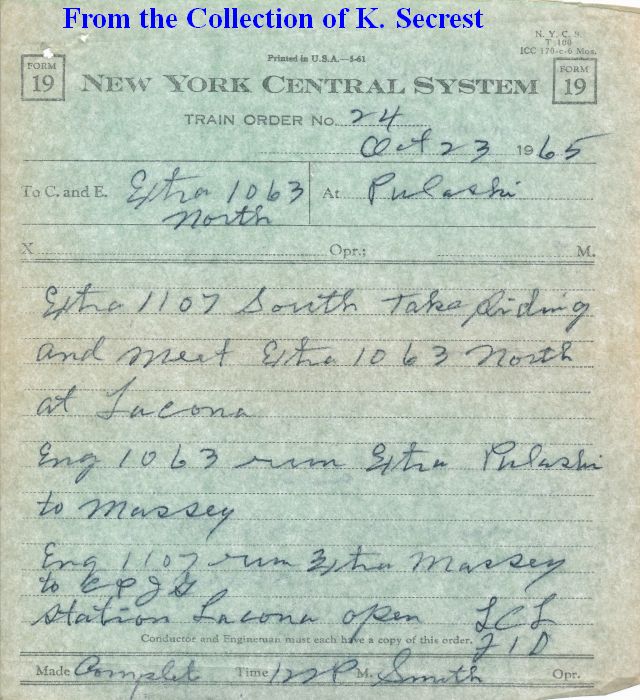 From the Collection of K. Secrest
N. Y. C. S.
T 100
ICC 170-c-6 Mos.
Printed in U.S.A.—5-61
FORM
19
NEW YORK CENTRAL SYSTEM
FORM
19
TRAIN ORDER No. 24
Oct 23 1965
To C. and E. Extra 1063 North
At Pulaski
X Opr.; M.
Extra 1107 South Take Siding
and meet Extra 1063 North
at Lacona
Eng 1063 run Extra Pulaski
to Massey
Eng 1107 run Extra Massey
to
Station Lacona open
Conductor and Engineman must each have a copy of this order.
Made Complet Time 122P M. Smith Opr.